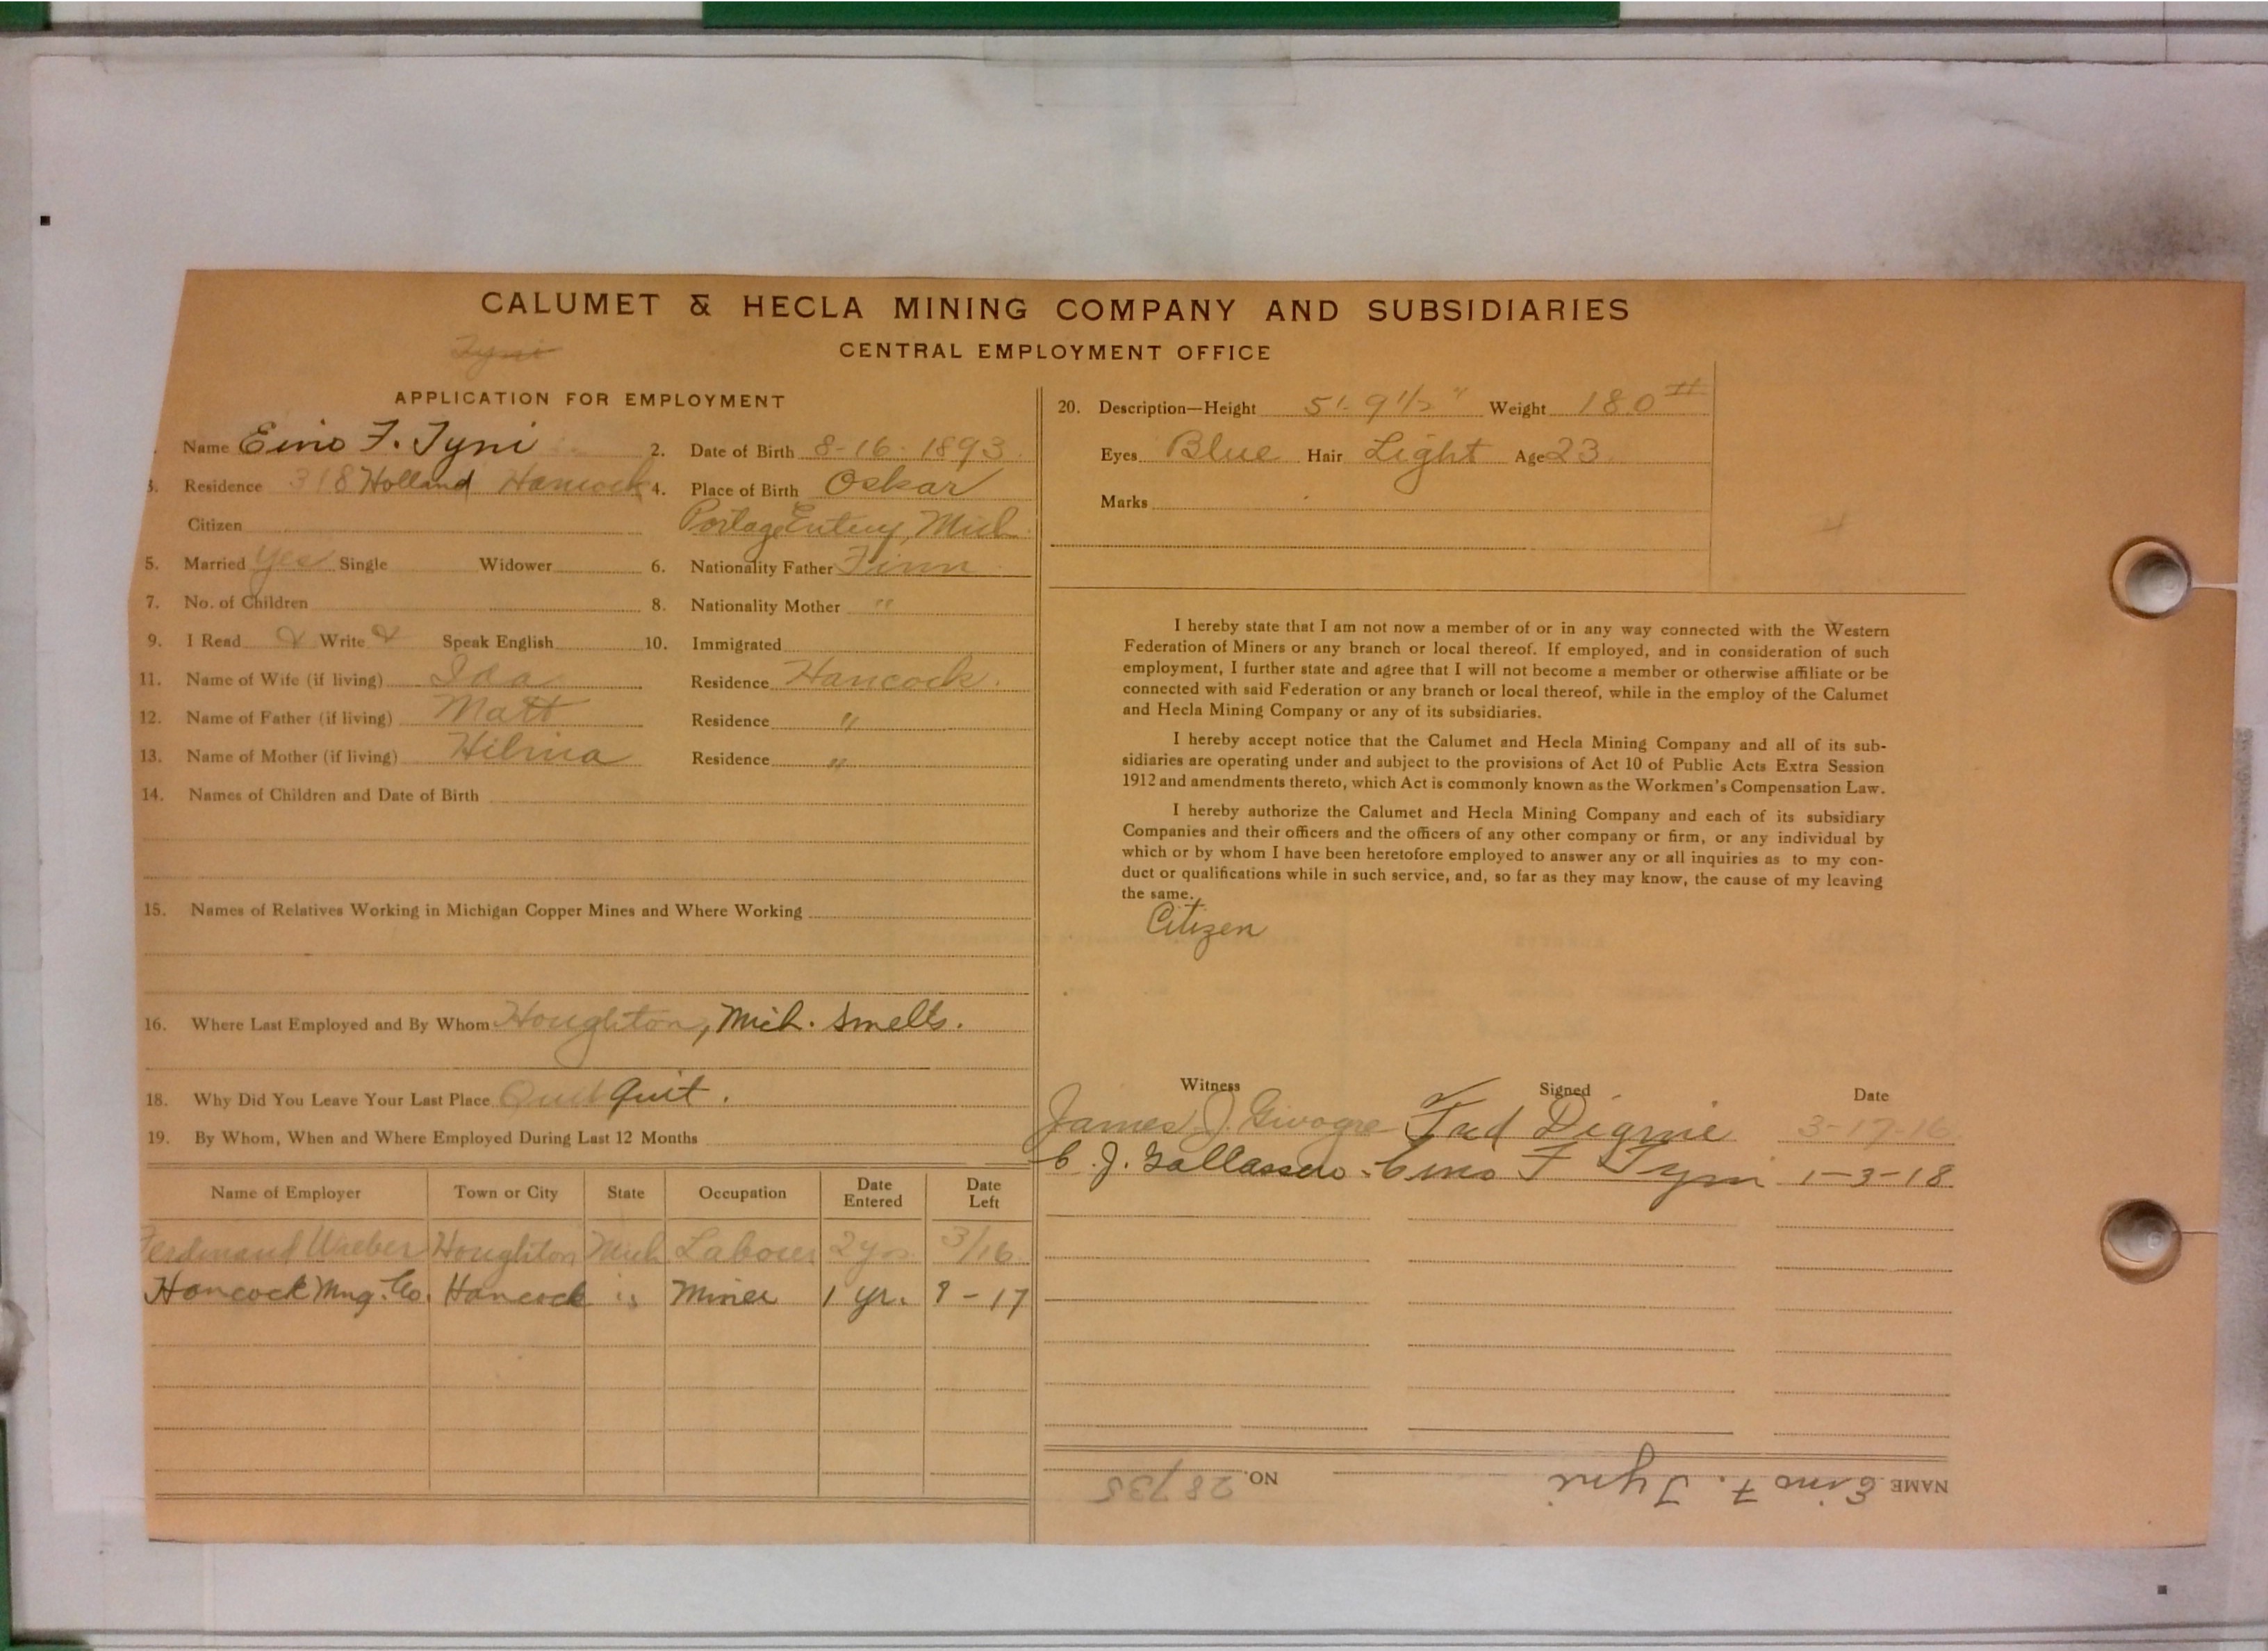 CALUMET & HECLA MINING COMPANY AND SUBSIDIARIES
Tyni
CENTRAL EMPLOYMENT OFFICE
APPLICATION FOR EMPLOYMENT
Name Eino F. Tyni
2. Date of Birth 8-16-1893
3. Residence 318 Holland Hancock
4. Place of Birth Oskar
Citizen
Portage Entery, Mich
5. Married Yes Single Widower
6. Nationality Father Finn
7. No. of Children
8. Nationality Mother "
9. I Read Write Speak English
10. Immigrated
11. Name of Wife (if living) Ida
Residence Hancock.
12. Name of Father (if living) Matt
Residence "
13. Name of Mother (if living) Hilma
Residence "
14. Names of Children and Date of Birth
15. Names of Relatives Working in Michigan Copper Mines and Where Working
16. Where Last Employed and By Whom Houghton, Mich. Smelts.
18. Why Did You Leave Your Last Place Quit Quit.
19. By Whom, When and Where Employed During Last 12 Months
Name of Employer Town or City State Occupation Date Entered Date Left
Ferdinand Houghton Mich Laborer 2 yrs. 3/16
Hancock Mng. Co. Hancock " Miner 1 yr. 8-17
20. Description—Height 5'-9 1/2" Weight 180 #
Eyes Blue Hair Light Age 23
Marks
I hereby state that I am not now a member of or in any way connected with the Western
Federation of Miners or any branch or local thereof. If employed, and in consideration of such
employment, I further state and agree that I will not become a member or otherwise affiliate or be
connected with said Federation or any branch or local thereof, while in the employ of the Calumet
and Hecla Mining Company or any of its subsidiaries.
I hereby accept notice that the Calumet and Hecla Mining Company and all of its sub-
sidiaries are operating under and subject to the provisions of Act 10 of Public Acts Extra Session
1912 and amendments thereto, which Act is commonly known as the Workmen's Compensation Law.
I hereby authorize the Calumet and Hecla Mining Company and each of its subsidiary
Companies and their officers and the officers of any other company or firm, or any individual by
which or by whom I have been heretofore employed to answer any or all inquiries as to my con-
duct or qualifications while in such service, and, so far as they may know, the cause of my leaving
the same.
Citizen
Witness Signed Date
James J. 3-17-16
C. J. Eino F Tyni 1-3-18
NAME Eino F. Tyni NO. 28735